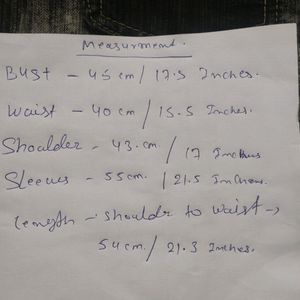 Measurment.
Bust - 45 cm / 17.5 Inches.
Waist - 40 cm / 15.5 Inches.
Shoulder - 43 cm. / 17 Inches
Sleeves - 55 cm. / 21.5 Inches.
length - shoulder to waist →
54 cm. / 21.3 Inches.